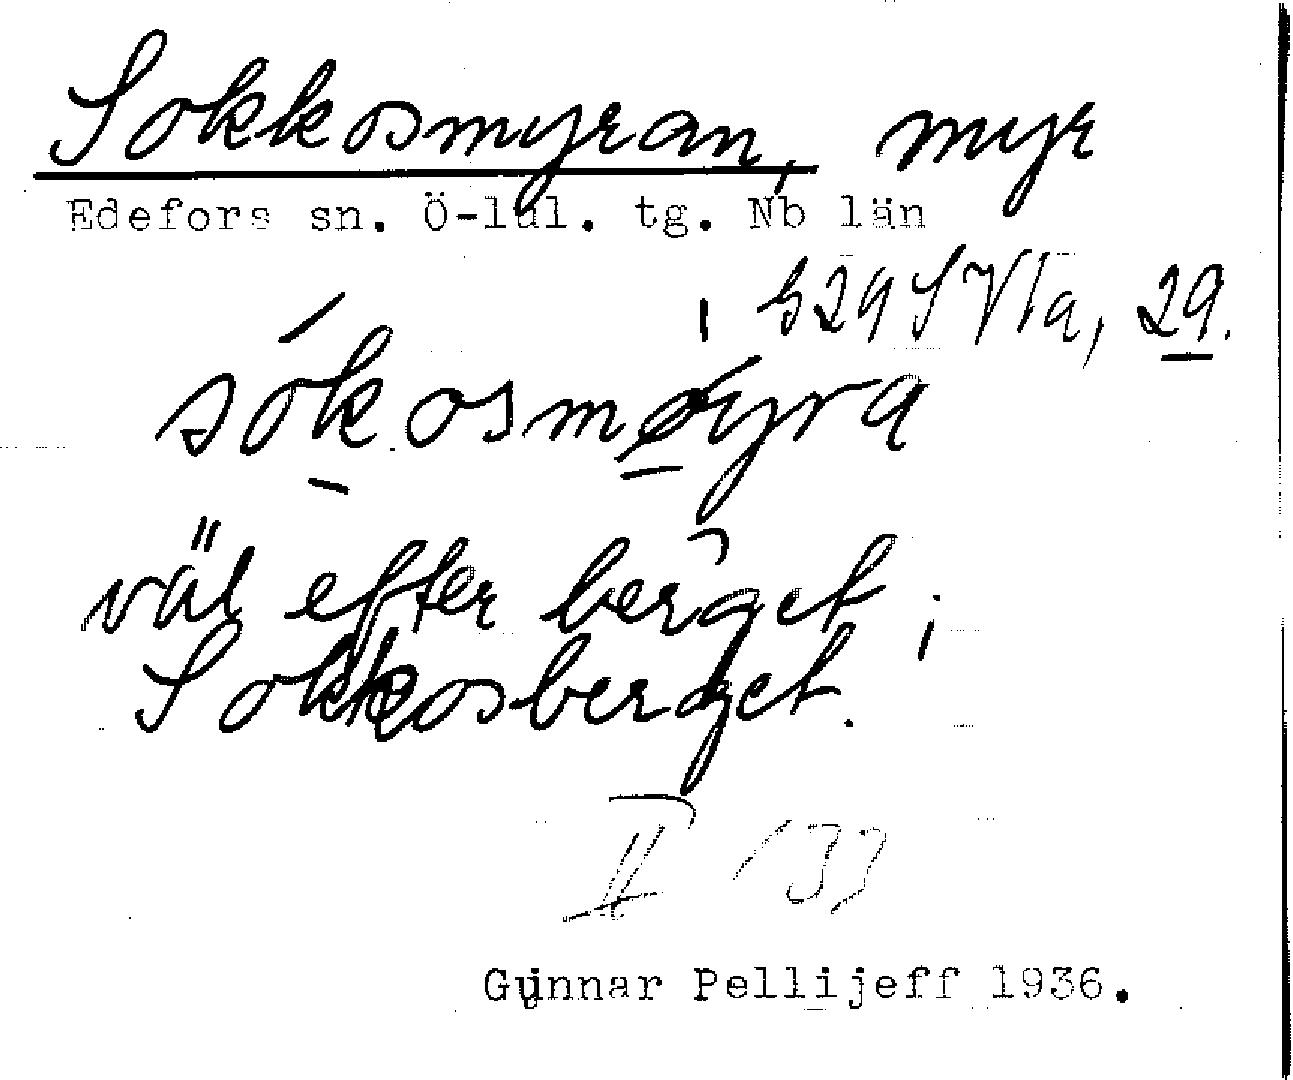 Sokkosmyran, myr
Edefors sn. Ö-lul. tg. Nb län
529 S VIa, 29.
sókosmøyra
väl efter berget
Sokkosberget.
II 133
Gunnar Pellijeff 1936.